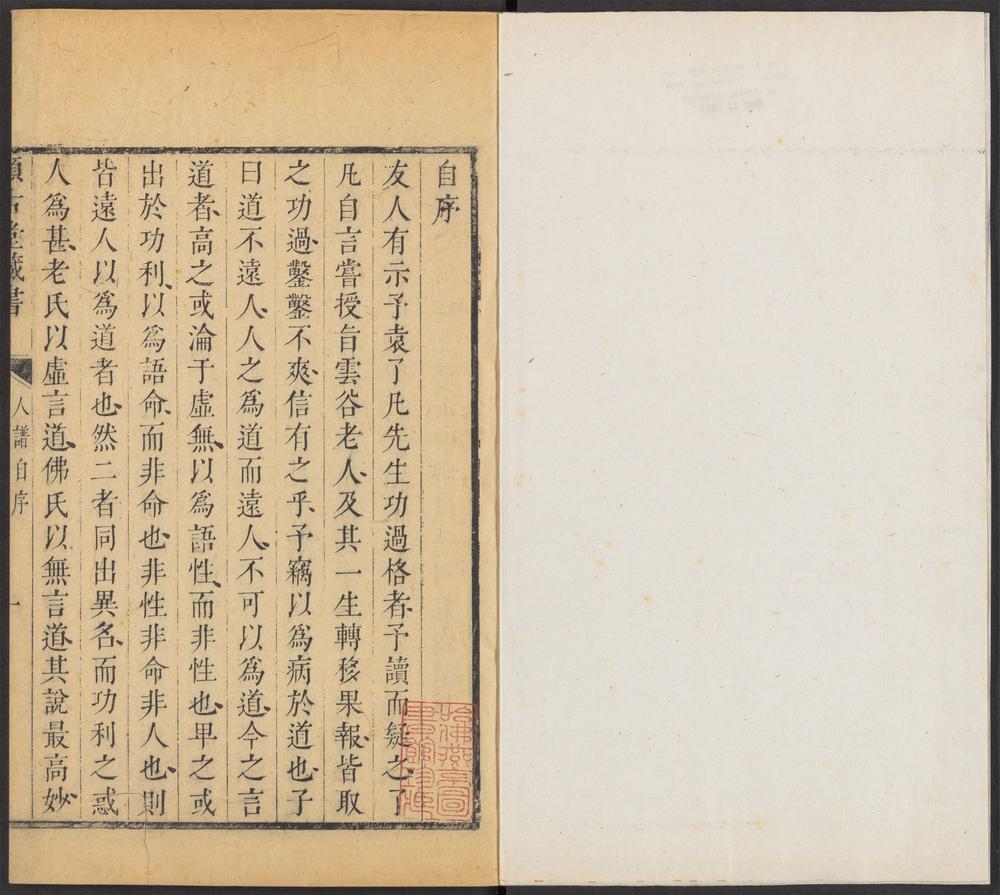 自序
友人有示予袁了凡先生功過格者予讀而疑之了
凡自言嘗授旨雲谷老人及其一生轉移果報皆取
之功過鑿鑿不爽信有之乎予竊以爲病於道也子
曰道不遠人人之爲道而遠人不可以爲道今之言
道者高之或淪于虛無以爲語性而非性也卑之或
出於功利以爲語命而非命也非性非命非人也則
皆遠人以爲道者也然二者同出異名而功利之惑
人爲甚老氏以虛言道佛氏以無言道其說最高妙
人譜自序
一
哈佛燕京圖書館珍藏